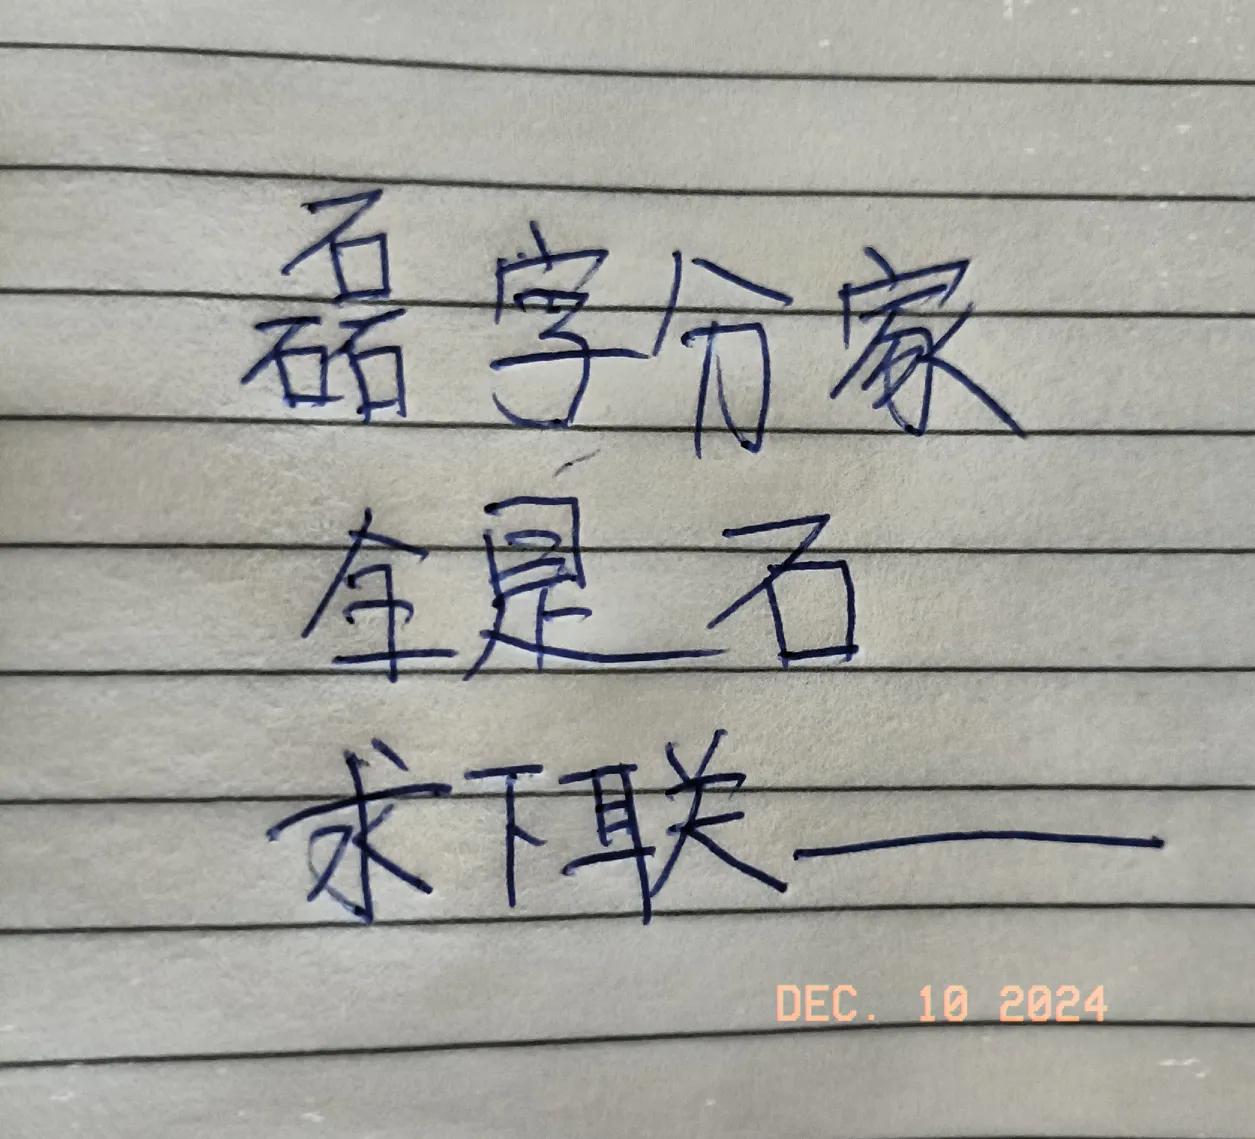 磊字分家
全是石
求下联——
DEC. 10 2024